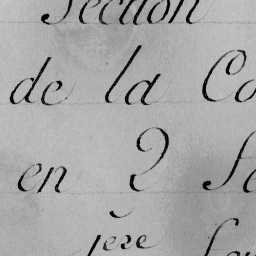 Section
de la Co
en 2 f
1ere